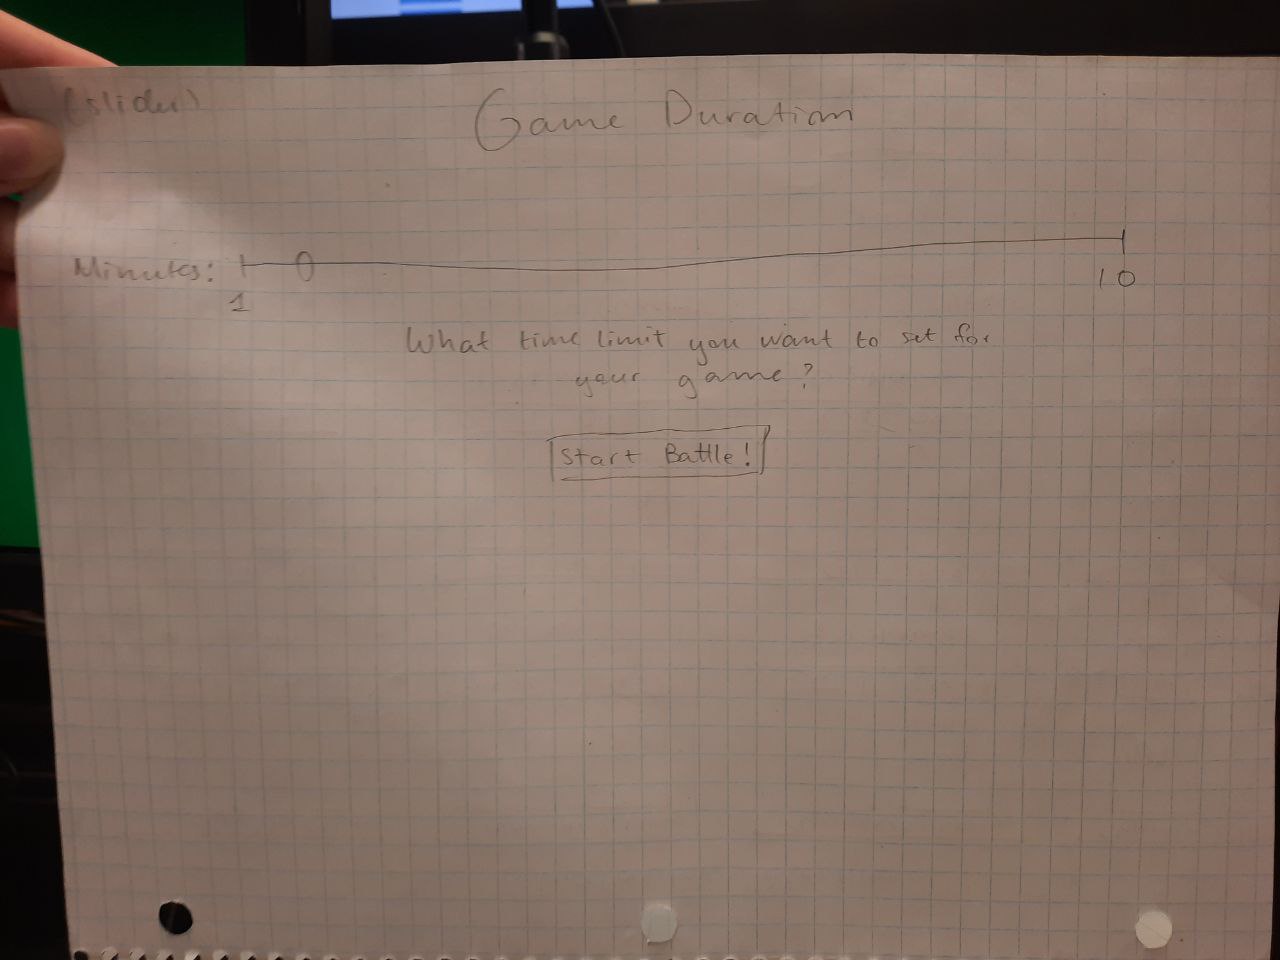 (slider)
Game Duration
Minutes:
1
10
What time limit you want to set for
your game?
Start Battle!